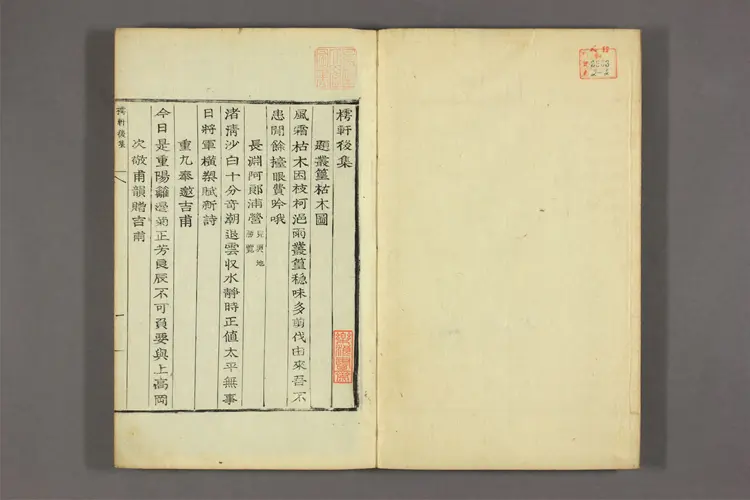 樗軒後集
題叢篁枯木圖
風霜枯木因枝柯浥雨叢篁穏味多前伐由來吾不
患開餘擡眼費吟哦
長淵阿郞浦營
渚淸沙白十分奇潮退雲収水靜時正値太平無事
日將軍橫槊賦新詩
重九奉邀吉甫
今日是重陽籬邊菊正芳良辰不可負要與上高岡
次敬甫韻贈吉甫
樗軒後集